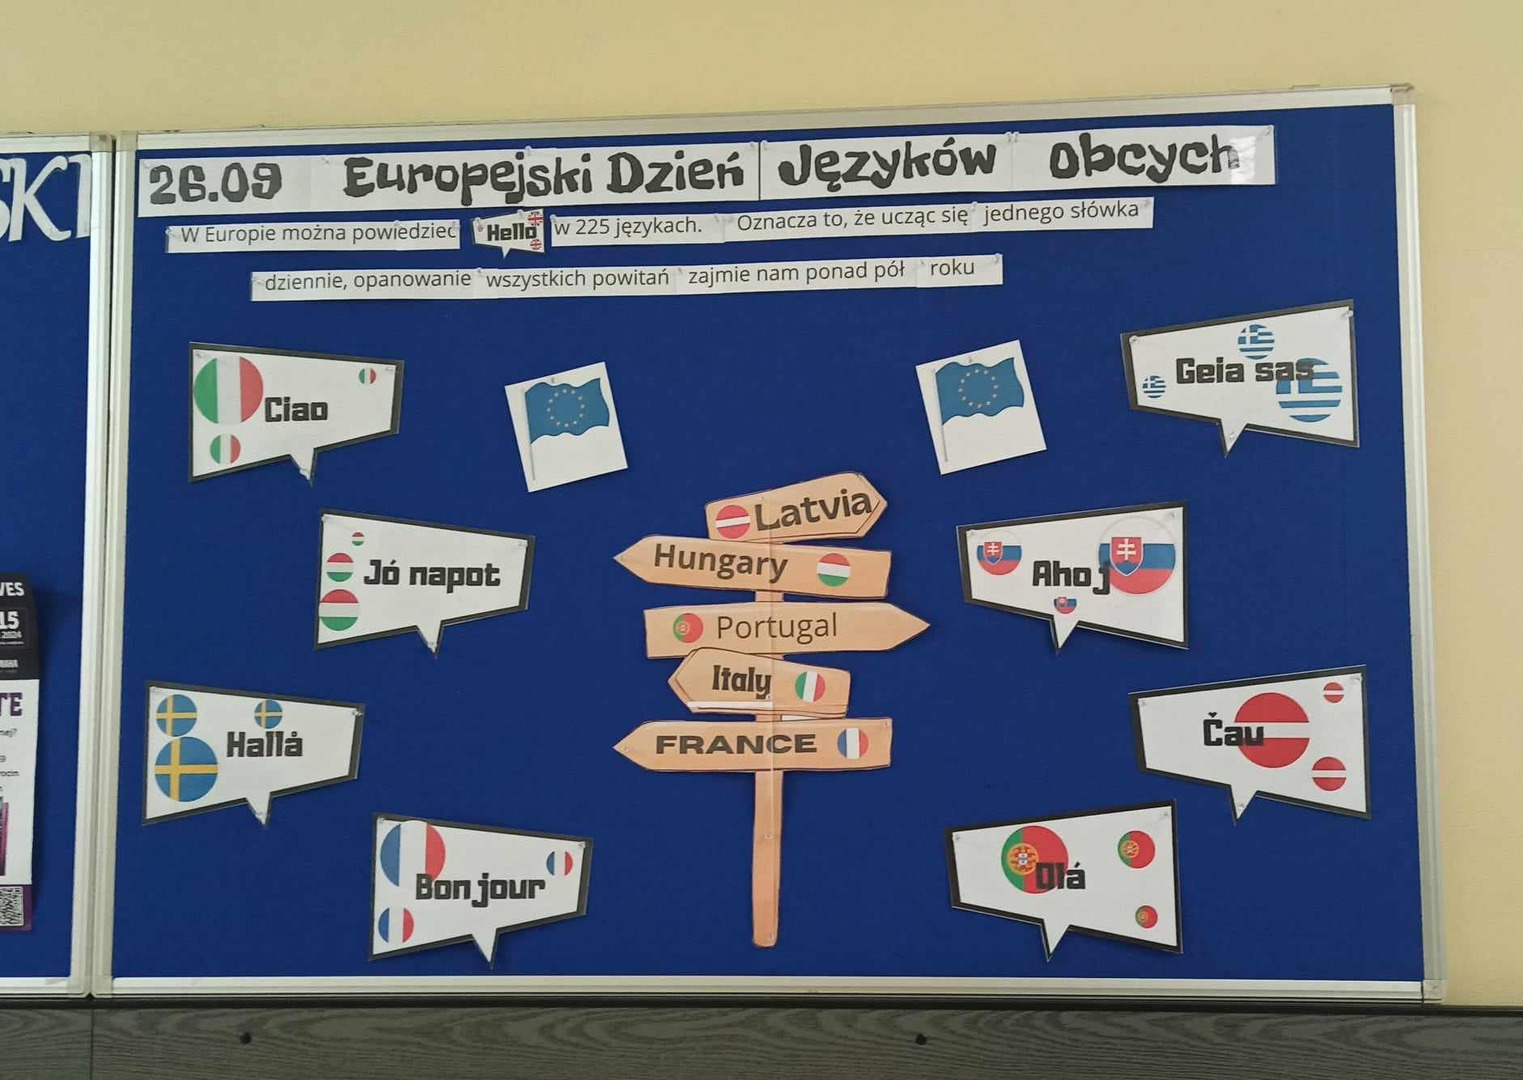 SKI
26.09 Europejski Dzień Języków obcych
W Europie można powiedziec Hello w 225 językach. Oznacza to, że ucząc się jednego słówka
dziennie, opanowanie wszystkich powitań zajmie nam ponad pół roku
Ciao
Geia sas
Latvia
Hungary
Portugal
Italy
FRANCE
Jó napot
Ahoj
Hallå
Čau
Bonjour
Olá
VES
15
2024
TE